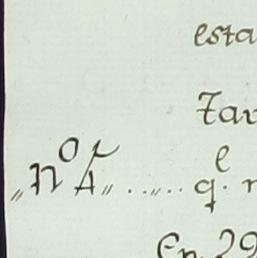 esta
Tar
„nº 4„ . . „ . . q.l n
En 29